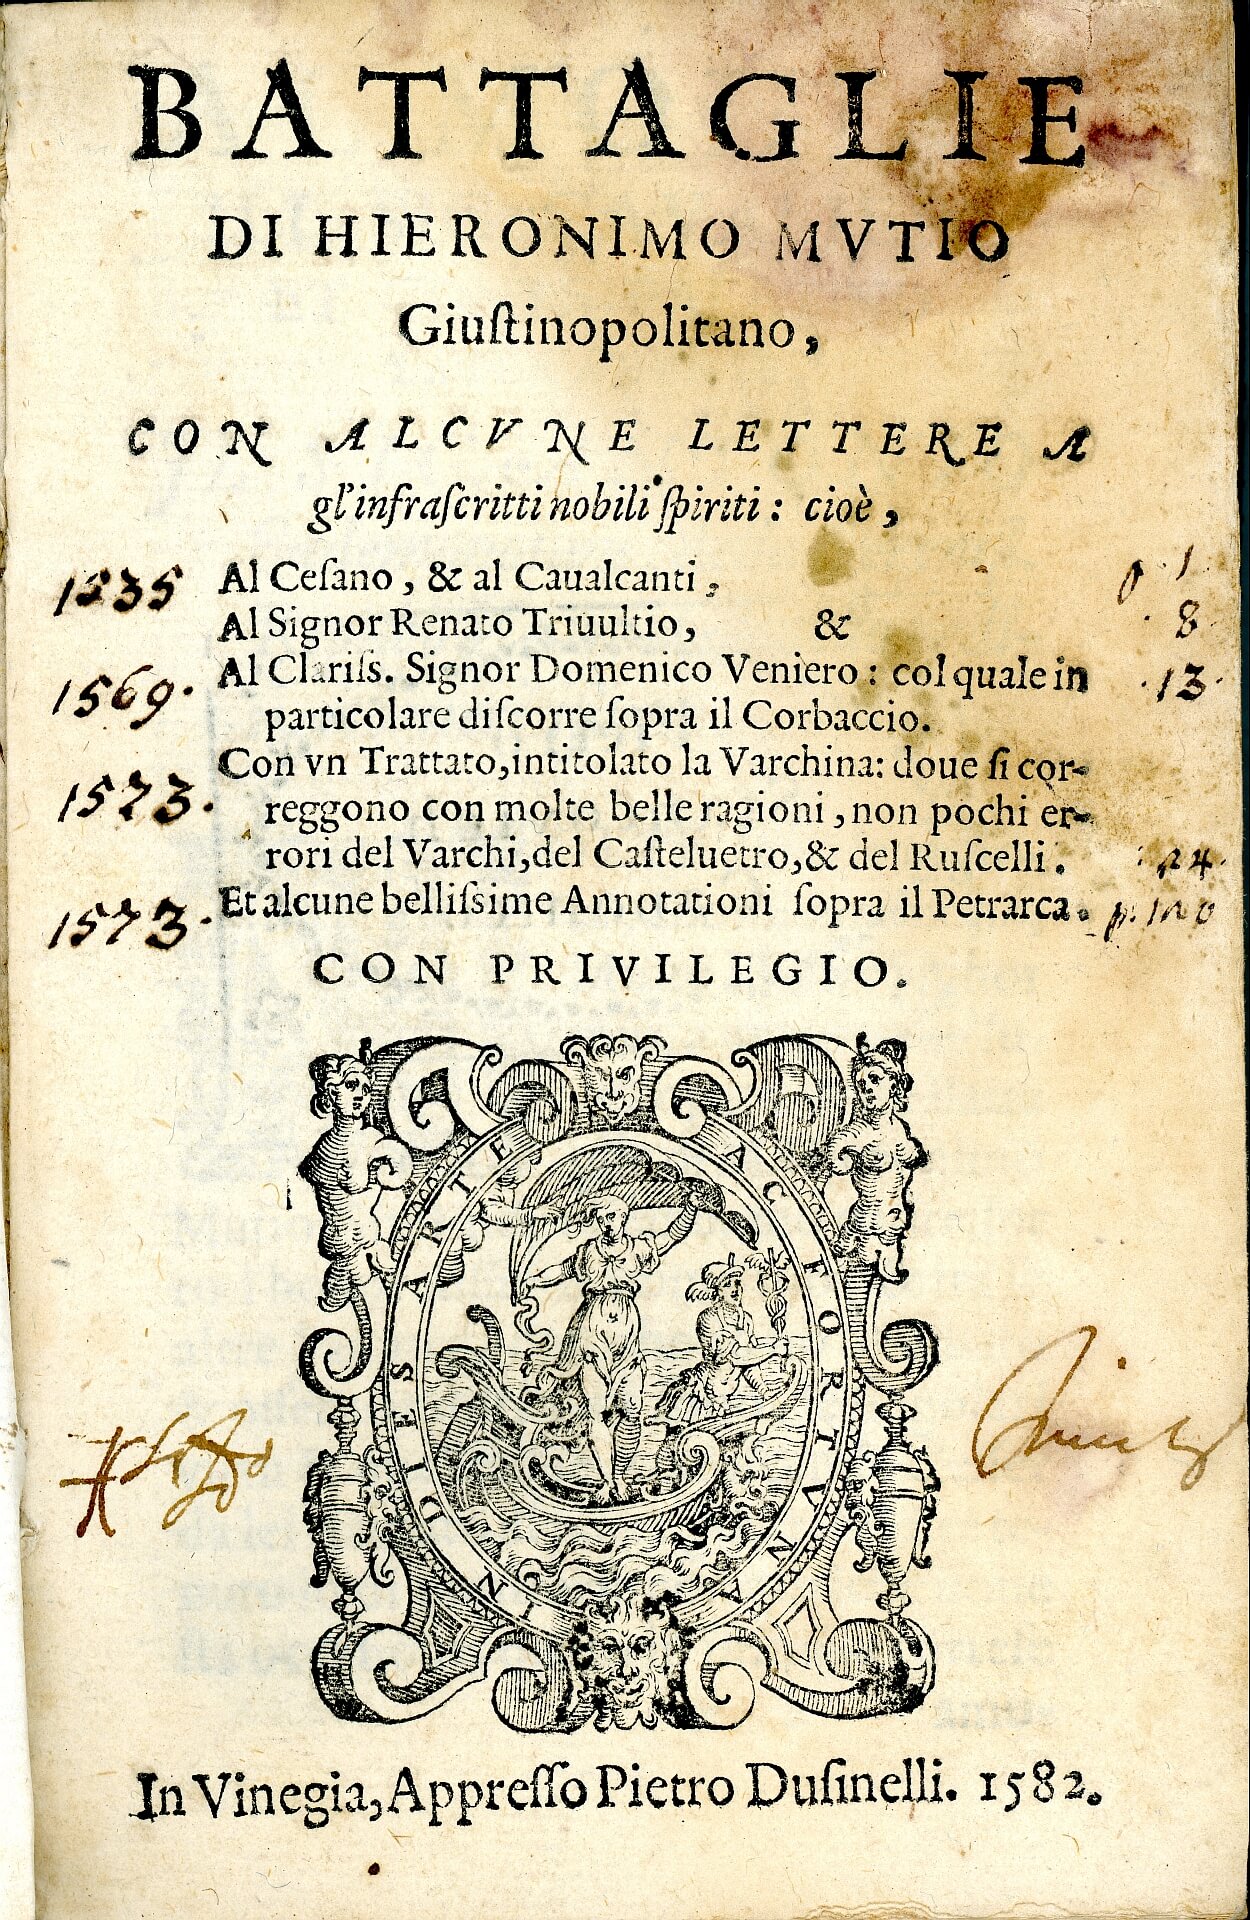 BATTAGLIE
DI HIERONIMO MVTIO
Giuſtinopolitano,
CON ALCVNE LETTERE A
gl'infraſcritti nobili ſpiriti : cioè,
1535 Al Ceſano, & al Caualcanti, 1
Al Signor Renato Triuultio, & 8
1569. Al Clariſs. Signor Domenico Veniero : col quale in 13
particolare diſcorre ſopra il Corbaccio.
Con vn Trattato, intitolato la Varchina: doue ſi cor-
1573. reggono con molte belle ragioni, non pochi er-
rori del Varchi, del Caſteluetro, & del Ruſcelli. 24
1573. Et alcune belliſsime Annotationi ſopra il Petrarca.
CON PRIVILEGIO.
INDIES ARTE AC FORTVNA
In Vinegia, Appreſſo Pietro Duſinelli. 1582.